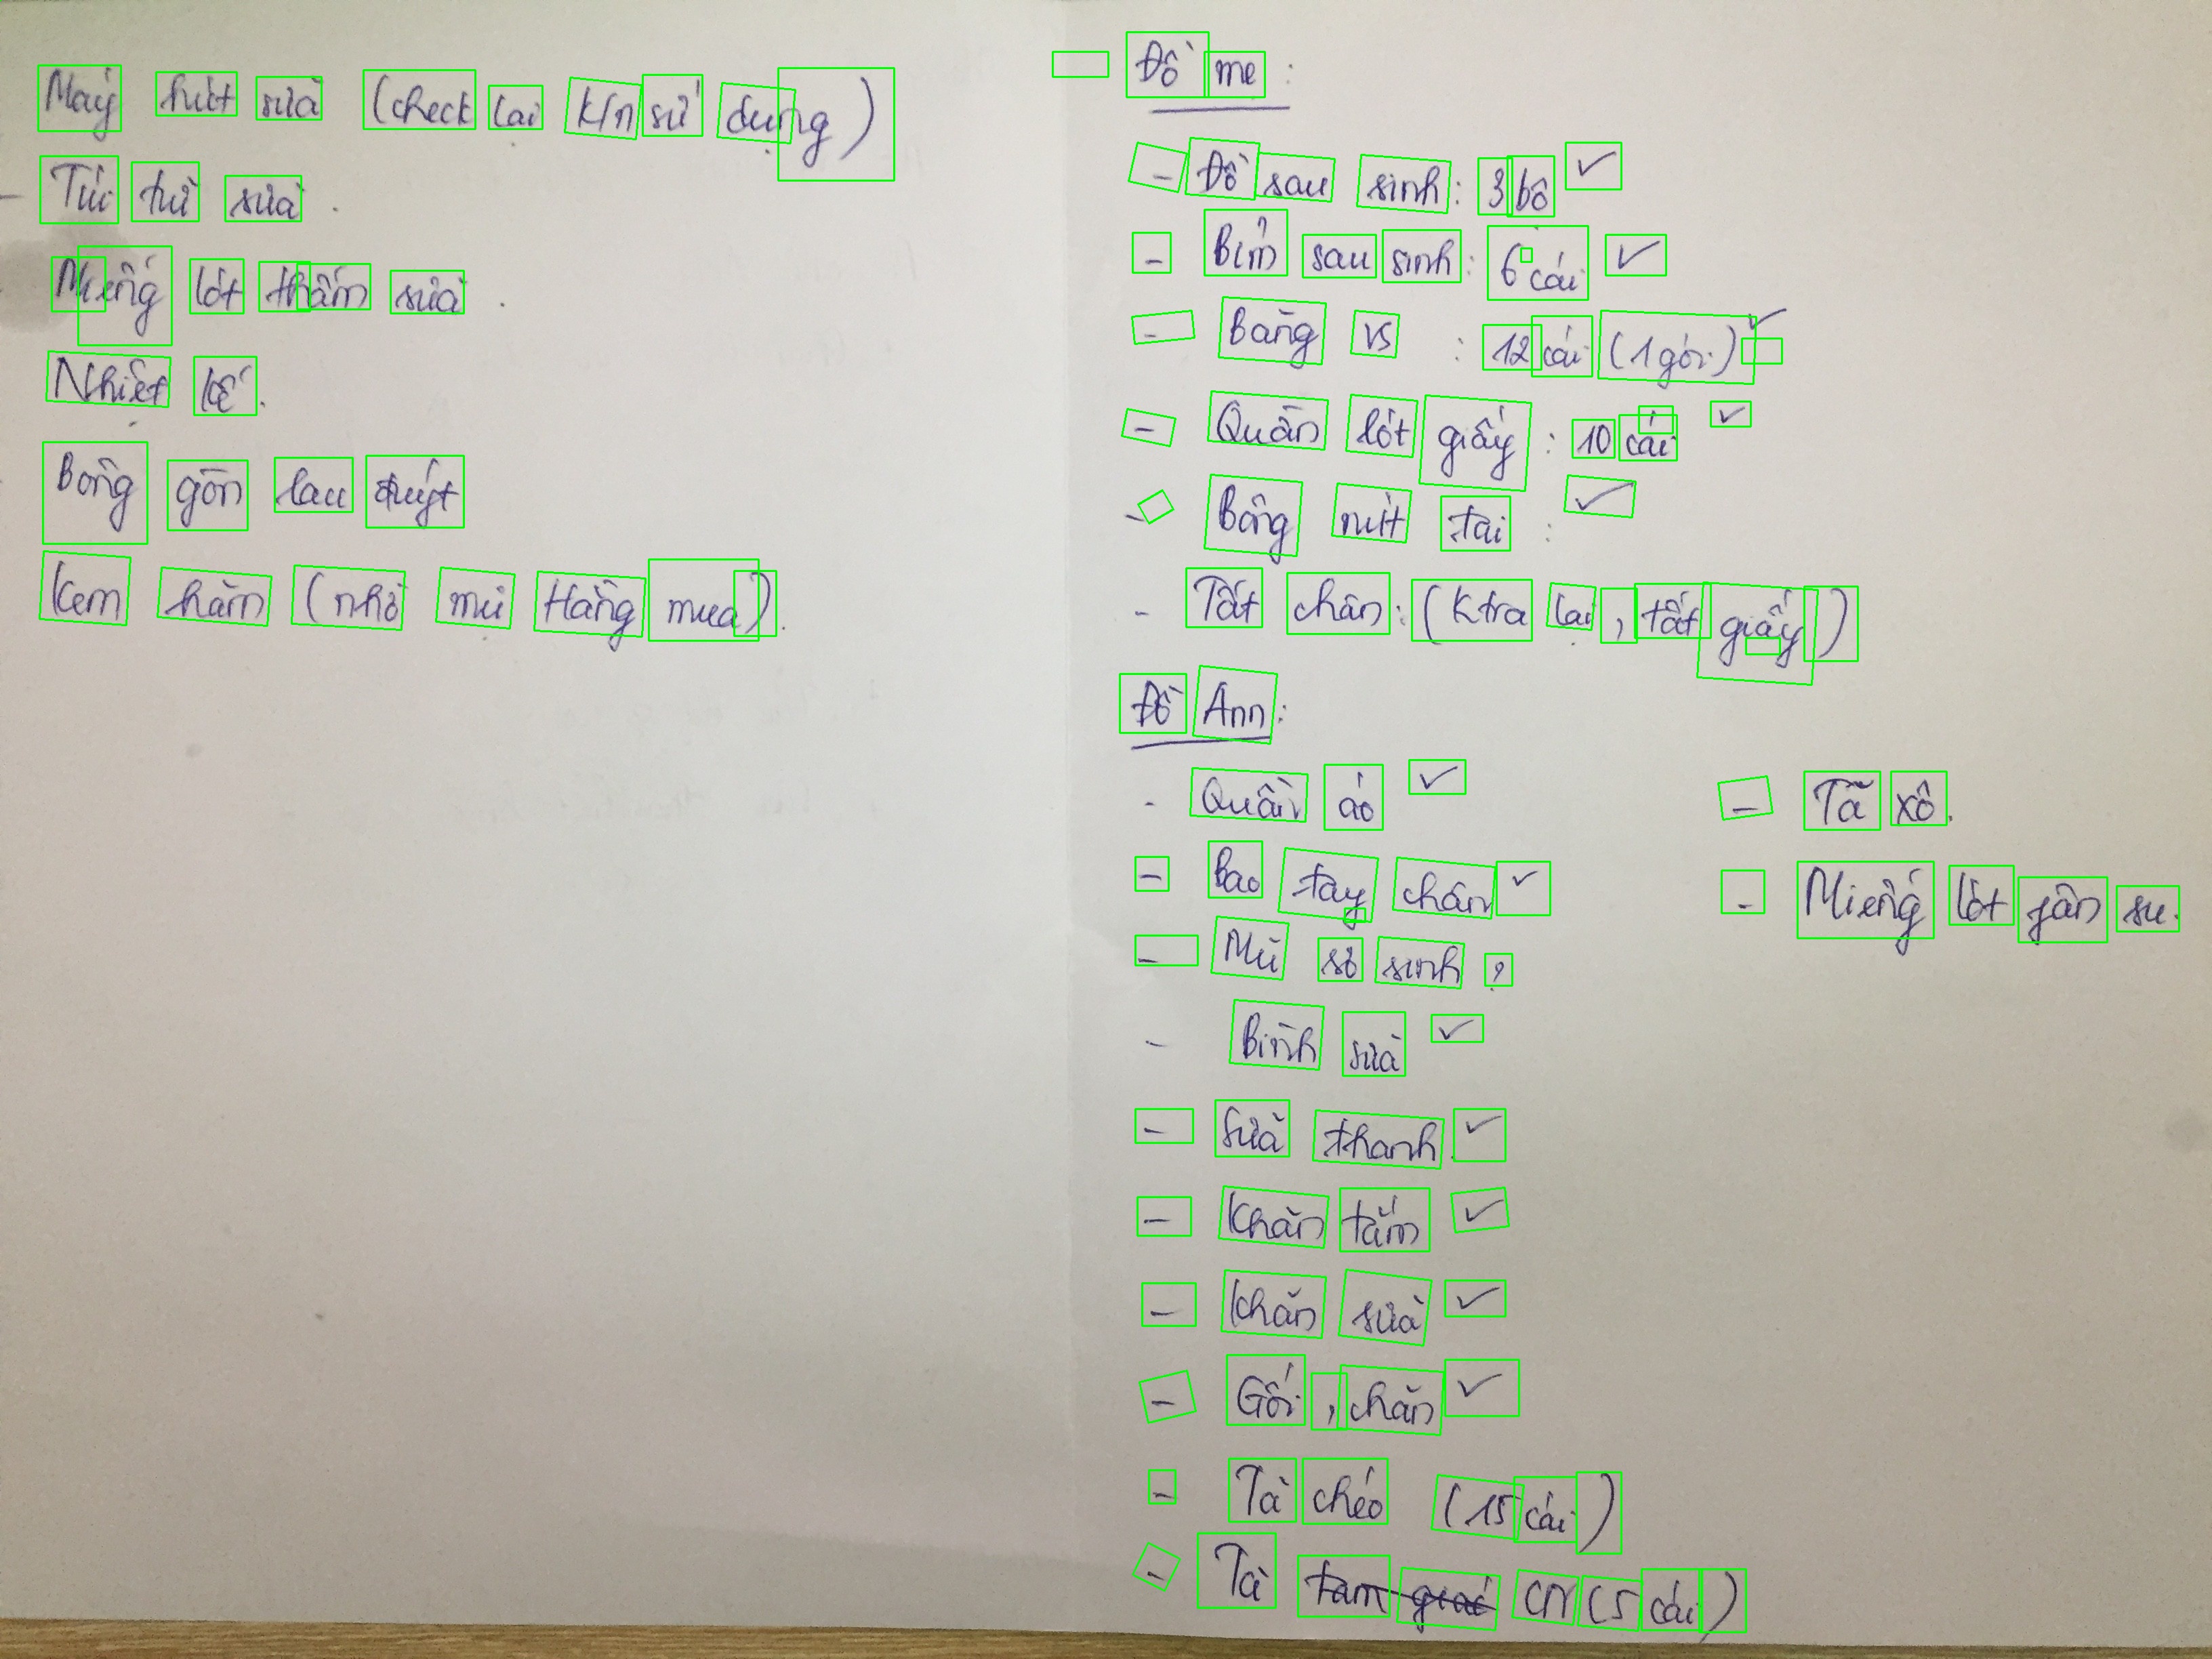 Máy hút sữa (check lại k/n sử dụng)
- Túi trữ sữa.
Miếng lót thấm sữa.
Nhiệt kế.
Bông gòn lau
Kem hăm (nhờ mú Hằng mua).
Đồ mẹ:
- Đồ sau sinh: 3 bộ ✓
- Bỉm sau sinh: 6 cái ✓
- Băng vs : 12 cái (1 gói) ✓
- Quần lót giấy : 10 cái ✓
- Bông nút tai : ✓
- Tất chân: (ktra lại, tất giấy)
Đồ Ann:
- Quần áo ✓
- Bao tay chân ✓
- Mũ sơ sinh ?
- Bình sữa ✓
- Sữa thanh. ✓
- Khăn tắm ✓
- Khăn sữa ✓
- Gối, chăn ✓
- Tã chéo (15 cái)
- Tã tam giác CN (5 cái)
- Tã xô.
- Miếng lót phân su.